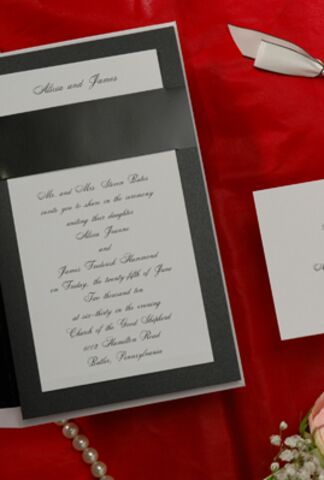 Alissa and James
Mr. and Mrs. Steven Bates
invite you to share in the ceremony
uniting their daughter
Alissa Jeanne
and
James Frederick Hammond
on Friday, the twenty fifth of June
Two thousand ten
at six-thirty in the evening
Church of the Good Shepherd
Hamilton Road
Butler, Pennsylvania